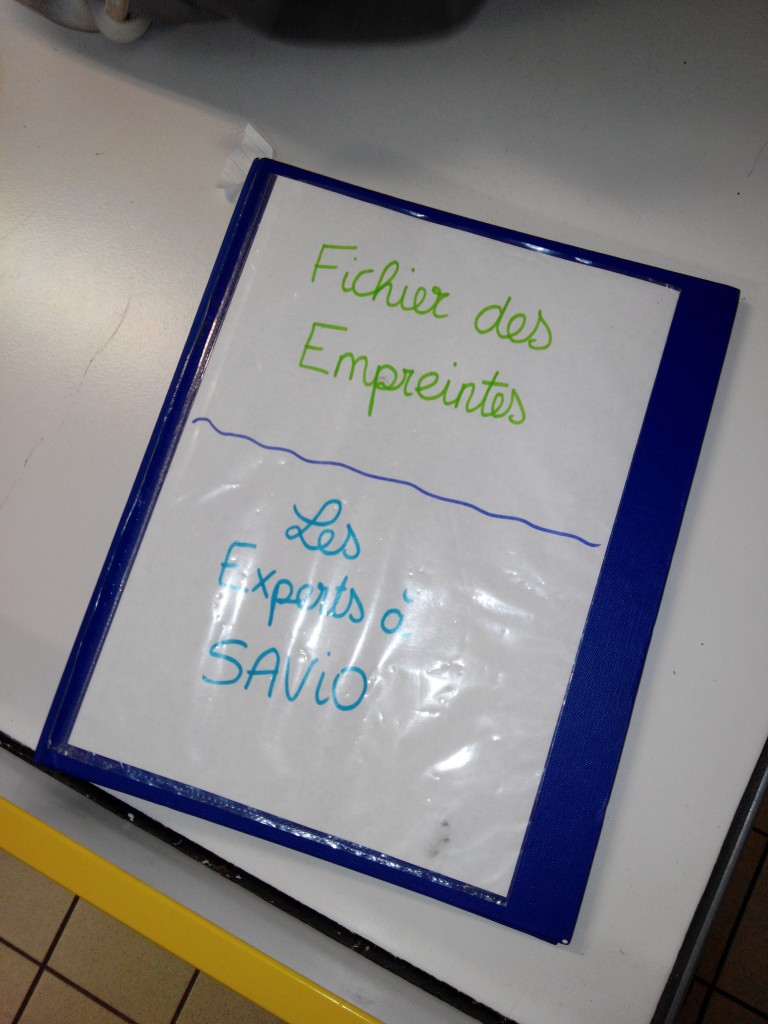 Fichier des
Empreintes
Les
Experts à
SAViO